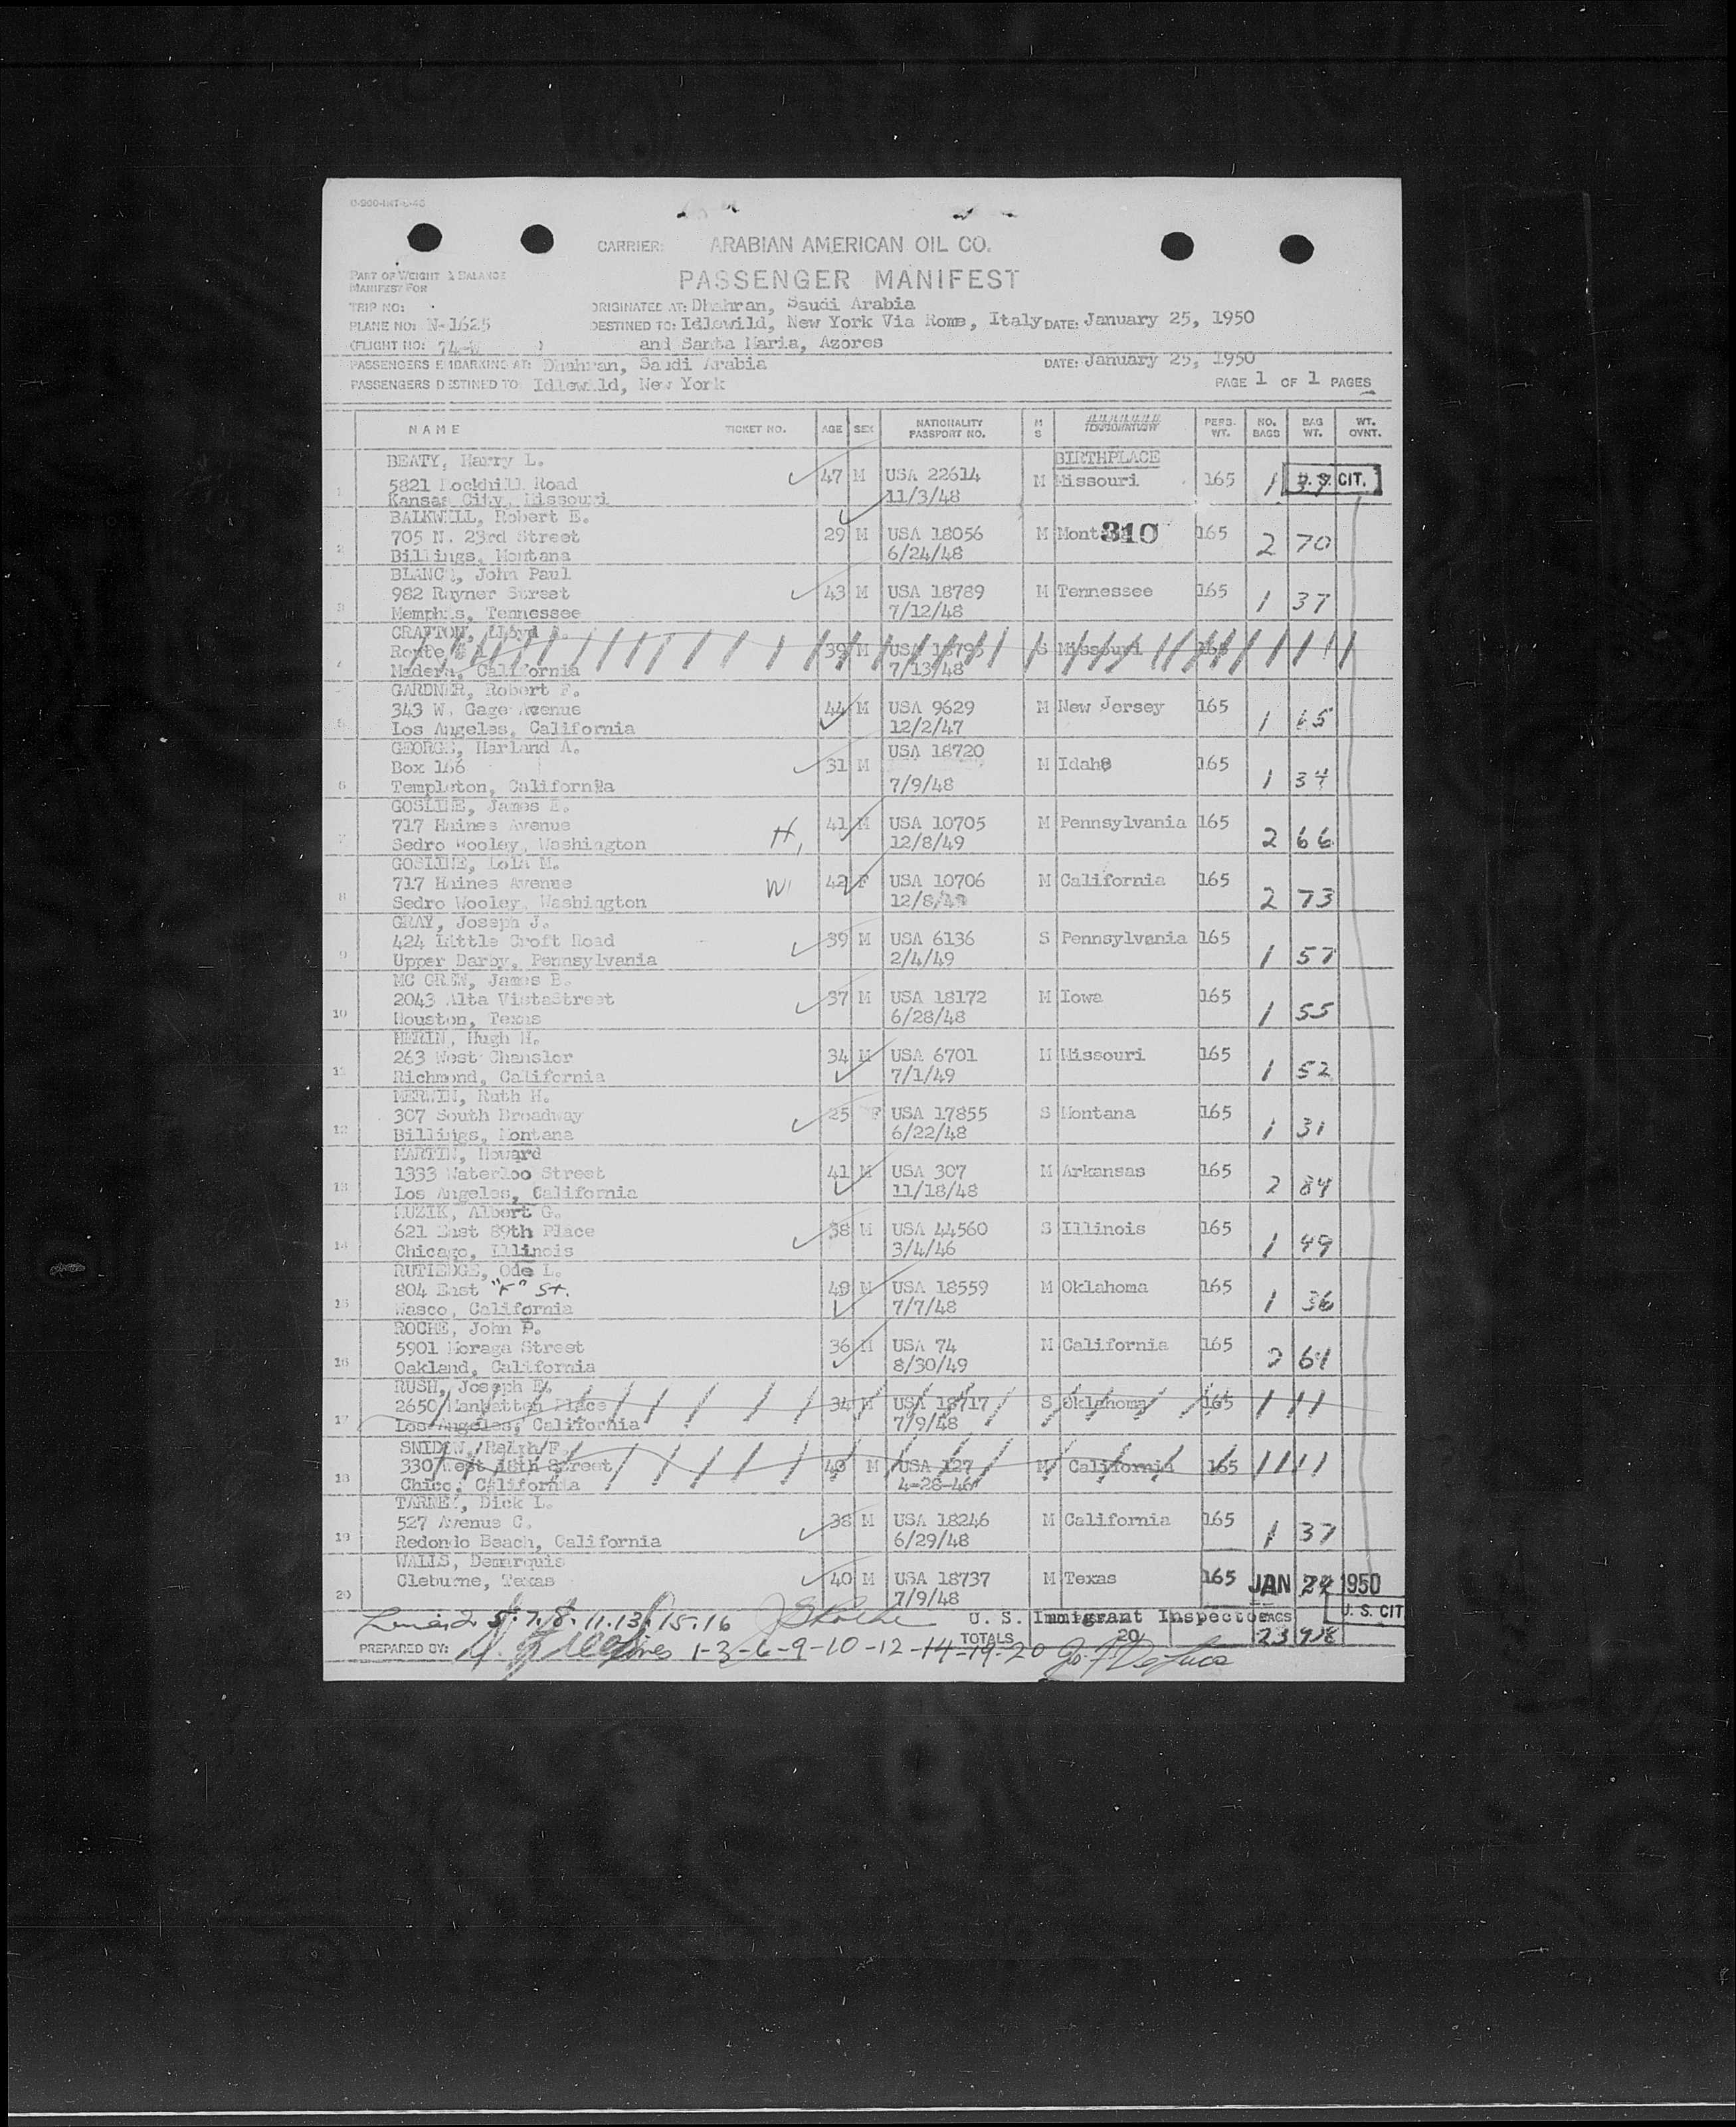 CARRIER: ARABIAN AMERICAN OIL CO.
PART OF WEIGHT & BALANCE
MANIFEST FOR
PASSENGER MANIFEST
TRIP NO:
ORIGINATED AT: Dhahran, Saudi Arabia
PLANE NO: N-1625
DESTINED TO: Idlewild, New York Via Rome, Italy DATE: January 25, 1950
(FLIGHT NO: 74-W )
and Santa Maria, Azores
PASSENGERS EMBARKING AT: Dhahran, Saudi Arabia DATE: January 25, 1950
PASSENGERS DESTINED TO: Idlewild, New York PAGE 1 OF 1 PAGES
NAME TICKET NO. AGE SEX NATIONALITY PASSPORT NO. M S DESTINATION PERS. WT. NO. BAGS BAG WT. WT. OVNT.
BIRTHPLACE
BEATY, Harry L.
1 5821 Rockhill Road 47 M USA 22614 M Missouri 165 1 U. S. CIT.
Kansas City, Missouri 11/3/48
BALKWILL, Robert E.
2 705 N. 23rd Street 29 M USA 18056 M Mont 310 165 2 70
Billings, Montana 6/24/48
BLANCK, John Paul
3 982 Rayner Street 43 M USA 18789 M Tennessee 165 1 37
Memphis, Tennessee 7/12/48
CRAFTON, Lloyd
4 Route 39 M USA S Missouri 165
Madera, California 7/13/48
GARDNER, Robert F.
5 343 W. Gage Avenue 44 M USA 9629 M New Jersey 165 1 65
Los Angeles, California 12/2/47
GEORGE, Harland A. USA 18720
6 Box 166 31 M M Idaho 165 1 34
Templeton, California 7/9/48
GOSLINE, James E.
7 717 Haines Avenue 41 M USA 10705 M Pennsylvania 165 2 66
Sedro Wooley, Washington H, 12/8/49
GOSLINE, Lola M.
8 717 Haines Avenue W 42 F USA 10706 M California 165 2 73
Sedro Wooley, Washington 12/8/49
GRAY, Joseph J.
9 424 Little Croft Road 39 M USA 6136 S Pennsylvania 165 1 57
Upper Darby, Pennsylvania 2/4/49
MC GREW, James B.
10 2043 Alta VistaStreet 37 M USA 18172 M Iowa 165 1 55
Houston, Texas 6/28/48
MERIN, Hugh H.
11 263 West Chanslor 34 M USA 6701 M Missouri 165 1 52
Richmond, California 7/1/49
MERWIN, Ruth H.
12 307 South Broadway 25 F USA 17855 S Montana 165 1 31
Billings, Montana 6/22/48
MARTIN, Howard
13 1333 Waterloo Street 41 M USA 307 M Arkansas 165 2 84
Los Angeles, California 11/18/48
MUZIK, Albert G.
14 621 East 89th Place 38 M USA 44560 S Illinois 165 1 49
Chicago, Illinois 3/4/46
RUTLEDGE, Ode L.
15 804 East "F" St. 49 M USA 18559 M Oklahoma 165 1 36
Wasco, California 7/7/48
ROCHE, John P.
16 5901 Moraga Street 36 M USA 74 M California 165 2 64
Oakland, California 8/30/49
RUSH, Joseph E.
17 2650 Manhattan Place 34 M USA 18717 S Oklahoma 165
Los Angeles, California 7/9/48
SNIDOW, Ralph F.
18 330 West 18th Street 40 M USA 127 M California 165
Chico, California 4-28-46
TARNEY, Dick L.
19 527 Avenue C. 38 M USA 18246 M California 165 1 37
Redondo Beach, California 6/29/48
WALLS, Demarquis
20 Cleburne, Texas 40 M USA 18737 M Texas 165 JAN 1950
7/9/48
5. 7. 8. 11. 13. 15. 16 U. S. Immigrant Inspector BAGS U. S. CIT.
PREPARED BY: Lines 1-3-6-9-10-12-14-19-20 TOTALS 20 23 918